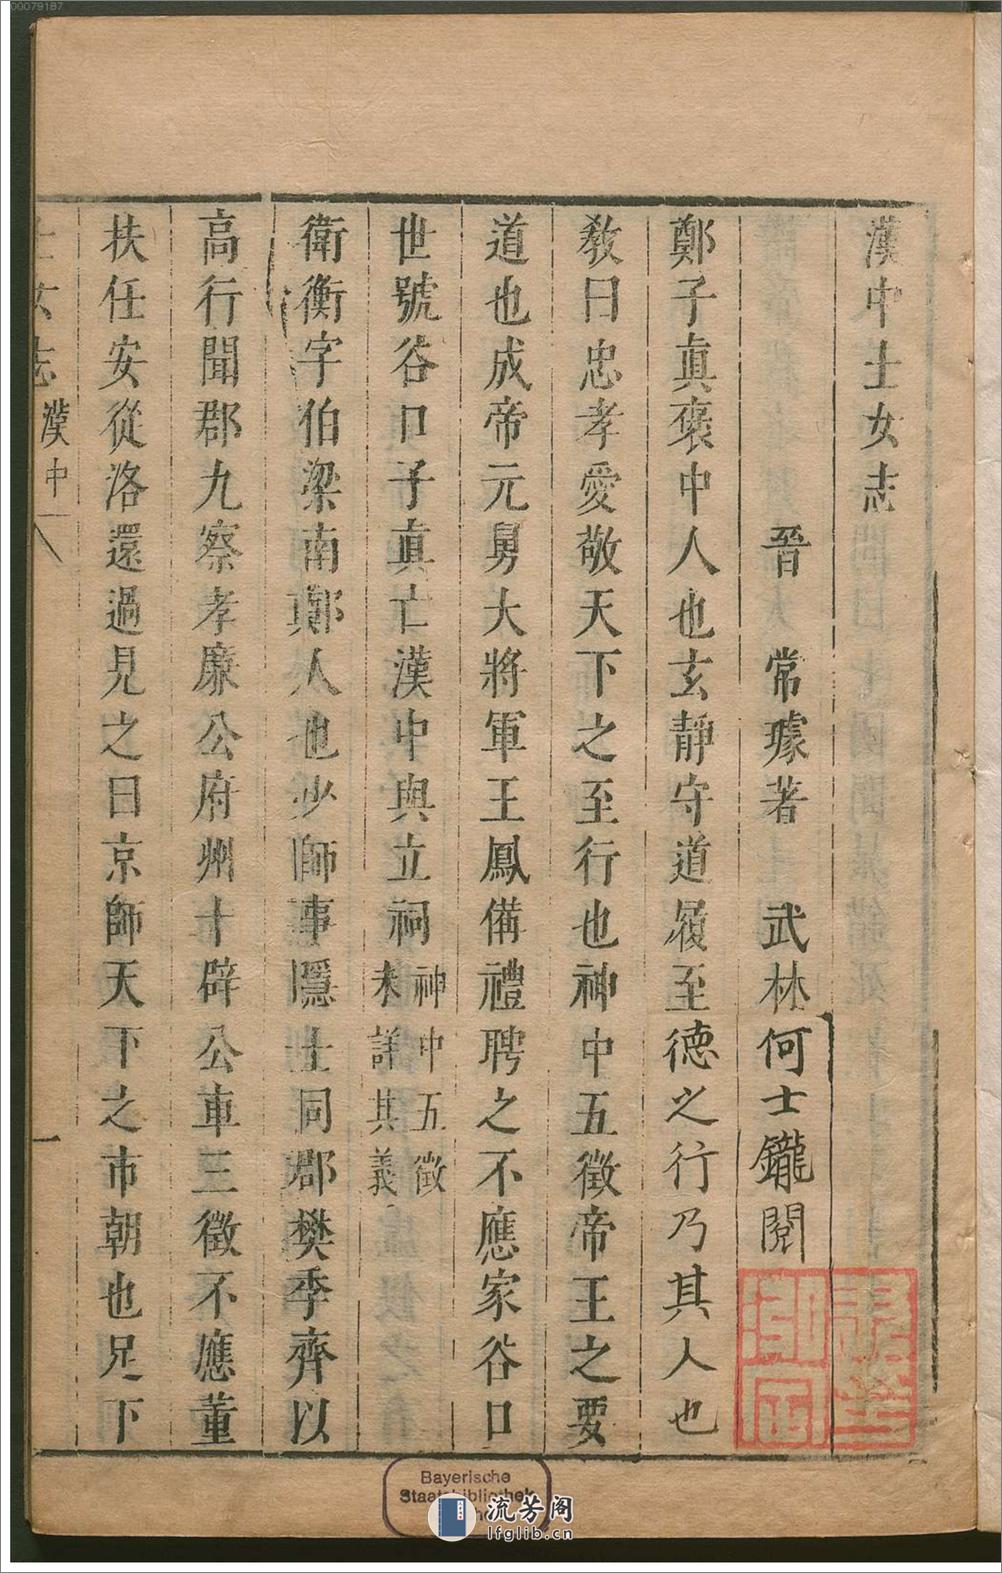 00079187
漢中士女志
晉　常璩著　武林何士鑨閱
鄭子真褒中人也玄靜守道履至德之行乃其人也
教曰忠孝愛敬天下之至行也神中五徵帝王之要
道也成帝元舅大將軍王鳳備禮聘之不應家谷口
世號谷口子真亡漢中與立祠神中五徵未詳其義
衛衡字伯梁南鄭人也少師事隱士同郡樊季齊以
高行聞郡九察孝廉公府州十辟公車三徵不應董
扶任安從洛還過見之曰京師天下之市朝也足下
士女志 漢中 一
Bayerische
Staatsbibliothek
流芳阁
lfglib.cn